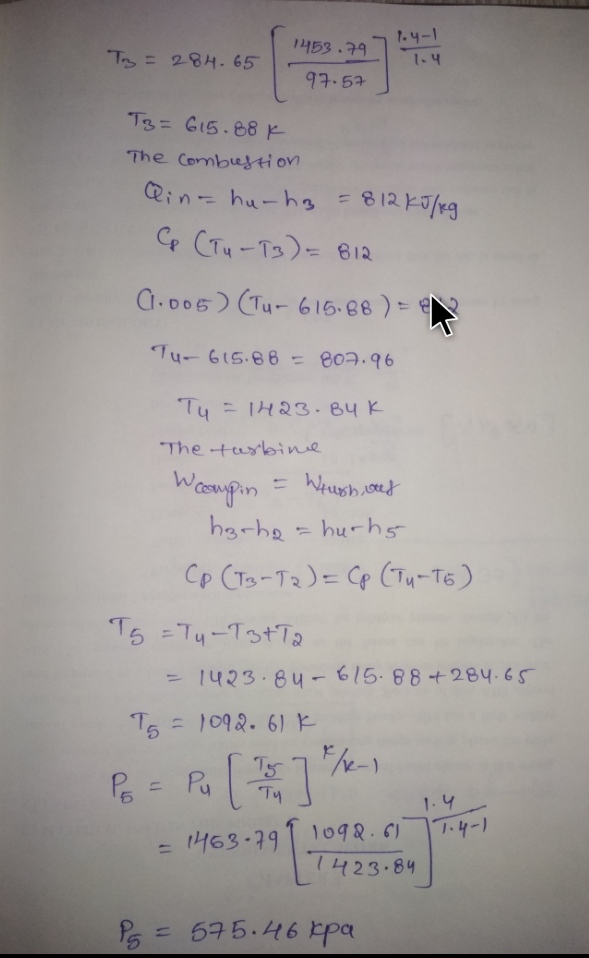 T3 = 284.65 [1453.79 / 97.57]^(1.4-1 / 1.4)
T3 = 615.88 K
The Combustion
Qin = h4-h3 = 812 KJ/kg
Cp (T4-T3) = 812
(1.005) (T4-615.88) =
T4-615.88 = 807.96
T4 = 1423.84 K
The turbine
Wcompin = Wturb,out
h3-h2 = h4-h5
Cp (T3-T2) = Cp (T4-T5)
T5 = T4-T3+T2
= 1423.84-615.88+284.65
T5 = 1092.61 K
P5 = P4 [T5 / T4]^K/K-1
= 1453.79 [1092.61 / 1423.84]^(1.4 / 1.4-1)
P5 = 575.46 kpa